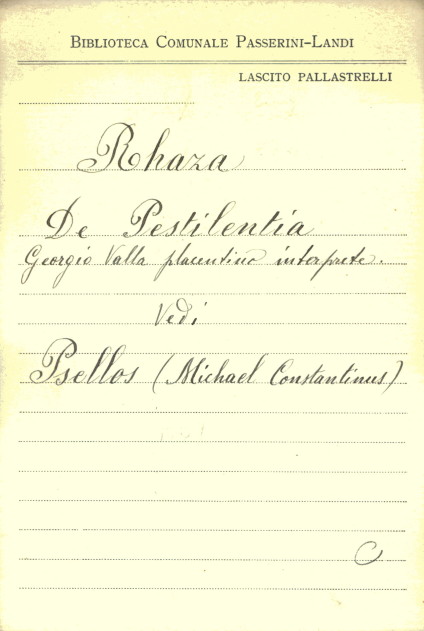 BIBLIOTECA COMUNALE PASSERINI-LANDI
LASCITO PALLASTRELLI
Rhaza
De Pestilentia
Georgio Valla placentino interprete.
Vedi
Psellos (Michael Constantinus)
C